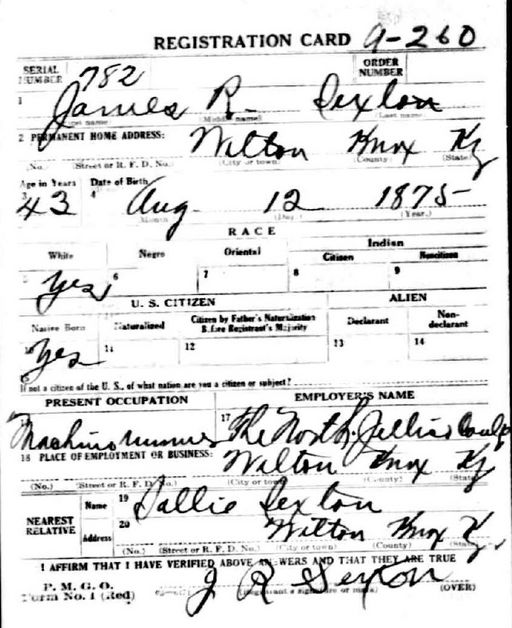 REGISTRATION CARD 9-260
SERIAL NUMBER 782 ORDER NUMBER
1 James R. Sexton
(First name) (Middle name) (Last name)
2 PERMANENT HOME ADDRESS: Wilton Knox Ky
(No.) (Street or R. F. D. No.) (City or town) (County) (State)
Age in Years Date of Birth
3 43 4 Aug. 12 1875
(Month) (Day.) (Year.)
RACE
White Negro Oriental Indian
Citizen Noncitizen
5 Yes 6 7 8 9
U. S. CITIZEN ALIEN
Native Born Naturalized Citizen by Father's Naturalization Before Registrant's Majority Declarant Non-declarant
10 Yes 11 12 13 14
15 If not a citizen of the U. S., of what nation are you a citizen or subject?
PRESENT OCCUPATION EMPLOYER'S NAME
16 Machine runner 17 The North Jellico Coal Co
18 PLACE OF EMPLOYMENT OR BUSINESS: Wilton Knox Ky
(No.) (Street or R. F. D. No.) (City or town) (County) (State)
NEAREST RELATIVE Name 19 Sallie Sexton
Address 20 Wilton Knox Ky.
(No.) (Street or R. F. D. No.) (City or town) (County) (State)
I AFFIRM THAT I HAVE VERIFIED ABOVE ANSWERS AND THAT THEY ARE TRUE
P. M. G. O.
Form No. 1 (Red) J R Sexton (OVER)
(Registrant's signature or mark)